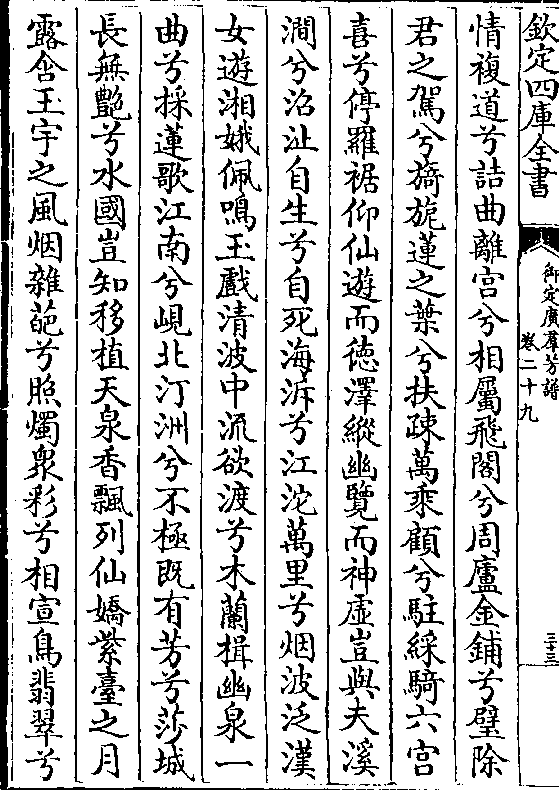 欽定四庫全書
御定廣羣芳譜
卷二十九
三十三
情複道兮詰曲離宫兮相屬飛閣兮周廬金鋪兮璧除
君之駕兮旖旎蓮之葉兮扶疎萬乘顧兮駐綵騎六宫
喜兮停羅裾仰仙遊而徳澤縱幽覽而神虚豈與夫溪
澗兮沼沚自生兮自死海泝兮江沱萬里兮烟波泛漢
女遊湘娥佩鳴玉戲清波中流欲渡兮木蘭楫幽泉一
曲兮採蓮歌江南兮峴北汀洲兮不極既有芳兮莎城
長無艷兮水國豈知移植天泉香飄列仙嬌紫臺之月
露含玉宇之風烟雜葩兮照燭衆彩兮相宣鳥翡翠兮